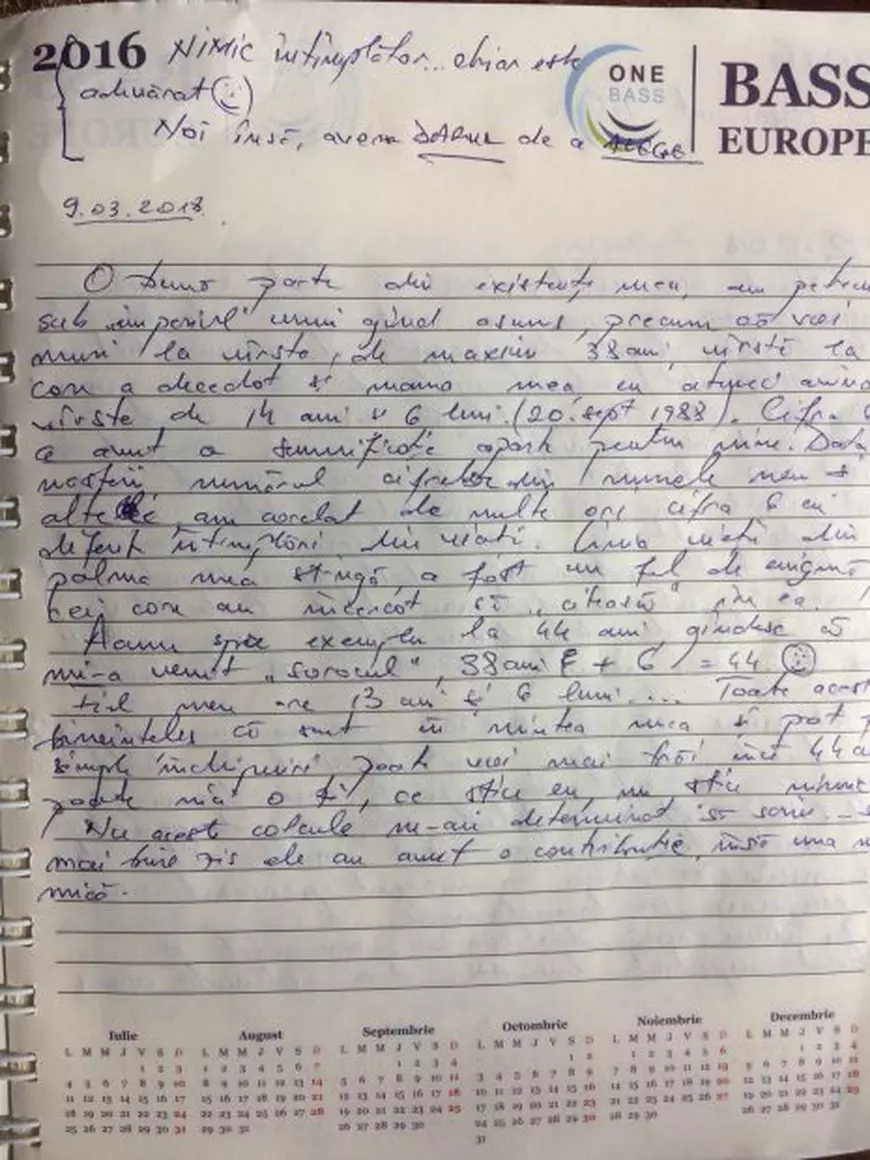 2016 Nimic întîmplător... chiar este
adevărat
Noi însă, avem DARUL de a ALEGE
ONE
BASS
BASS
EUROPE
9.03.2018
O bună parte din existența mea, am
sub "imperiul" unui gînd ascuns, precum că voi
muri la vîrsta, de maxim 38 ani, vîrstă la
care a decedat și mama mea eu atunci
vîrsta de 14 ani și 6 luni. (20 sept 1988). Cifra 6
a avut o semnificație aparte pentru mine. Data
nașterii numărul cifrelor din numele meu și
altele, am corelat de multe ori cifra 6 cu
diferite întîmplări din viață. Linia vieții din
palma mea stîngă, a fost un fel de enigmă
cei care au încercat să "citească" în ea.
Acum spre exemplu la 44 ani gîndesc că
mi-a venit "sorocul", 38 ani + 6 = 44
meu are 13 ani și 6 luni.... Toate
bineînțeles că sunt în mintea mea și pot
simple închipuiri poate voi mai trăi încă 44
poate nici o zi, ce știu eu, nu știu nimic
Nu aceste calcule m-au determinat să scriu
mai bine zis de au avut o contribuție, însă una
mică.
Iulie August Septembrie Octombrie Noiembrie Decembrie
L M M J V S D L M M J V S D L M M J V S D L M M J V S D L M M J V S D L M M J V S D
1 2 3 1 2 3 4 5 6 7 1 2 3 4 1 2 1 2 3 4 5 6 1 2 3 4
4 5 6 7 8 9 10 8 9 10 11 12 13 14 5 6 7 8 9 10 11 3 4 5 6 7 8 9 7 8 9 10 11 12 13 5 6 7 8 9 10 11
11 12 13 14 15 16 17 15 16 17 18 19 20 21 12 13 14 15 16 17 18 10 11 12 13 14 15 16 14 15 16 17 18 19 20 12 13 14 15 16 17 18
18 19 20 21 22 23 24 22 23 24 25 26 27 28 19 20 21 22 23 24 25 17 18 19 20 21 22 23 21 22 23 24 25 26 27 19 20 21 22 23 24 25
25 26 27 28 29 30 31 29 30 31 26 27 28 29 30 24 25 26 27 28 29 30 28 29 30 26 27 28 29 30 31
31